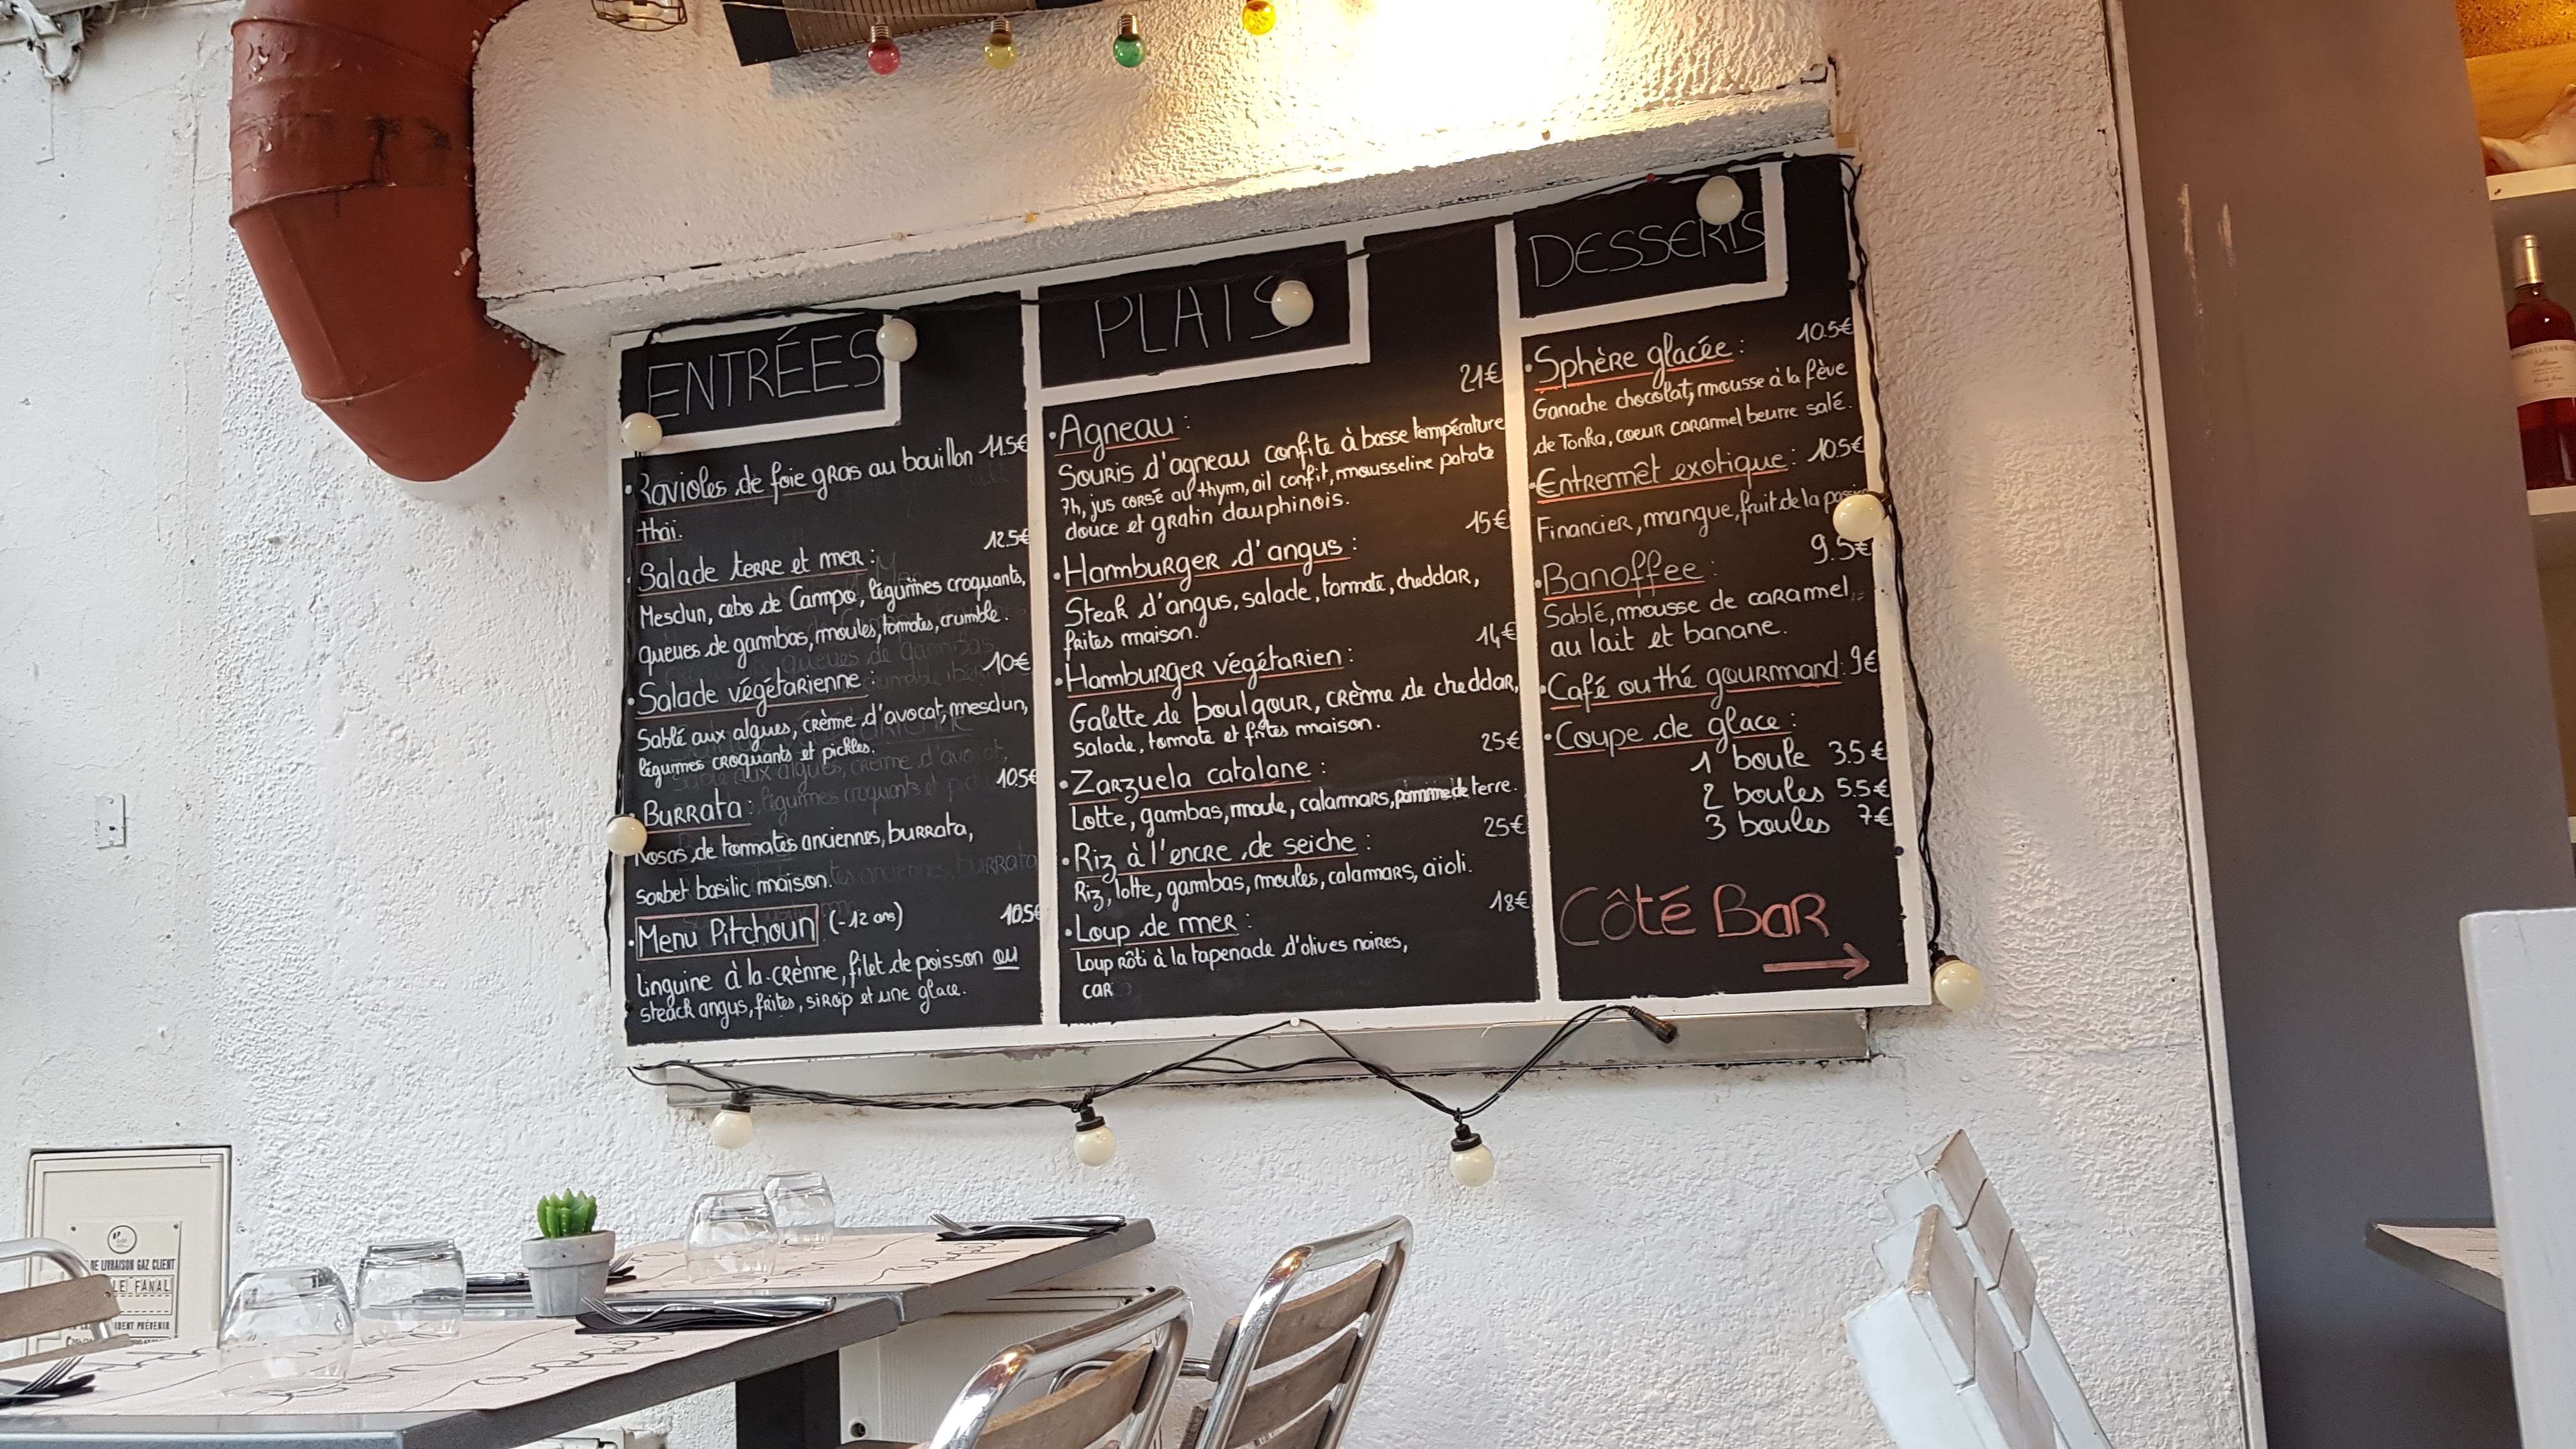 ENTRÉES
• Ravioles de foie gras au bouillon 11.5€
thaï.
• Salade terre et mer : 12.5€
Mesclun, cebo de Campo, légumes croquants,
queues de gambas, moules, tomates, crumble.
• Salade végétarienne : 10€
Sablé aux algues, crème d'avocat, mesclun,
légumes croquants et pickles.
• Burrata : 10.5€
de tomates anciennes, burrata,
sorbet basilic maison.
• Menu Pitchoun (-12 ans) 10.5€
Linguine à la crème, filet de poisson ou
steack angus, frites, sirop et une glace.
PLATS
• Agneau : 21€
Souris d'agneau confite à basse température
7h, jus corsé au thym, ail confit, mousseline patate
douce et gratin dauphinois.
• Hamburger d'angus : 15€
Steak d'angus, salade, tomate, cheddar,
frites maison.
• Hamburger végétarien : 14€
Galette de boulgour, crème de cheddar,
salade, tomate et frites maison.
• Zarzuela catalane : 25€
Lotte, gambas, moule, calamars, pomme de terre.
• Riz à l'encre de seiche : 25€
Riz, lotte, gambas, moules, calamars, aïoli.
• Loup de mer : 18€
Loup rôti à la tapenade d'olives noires,
car
DESSERTS
• Sphère glacée : 10.5€
Ganache chocolat, mousse à la fève
de Tonka, coeur caramel beurre salé.
• Entremêt exotique : 10.5€
Financier, mangue, fruit de la
• Banoffee : 9.5€
Sablé, mousse de caramel,
au lait et banane.
• Café ou thé gourmand : 9€
• Coupe de glace :
1 boule 3.5€
2 boules 5.5€
3 boules 7€
Côté Bar
→
DE LIVRAISON GAZ CLIENT
LE FANAL
PRÉVENIR